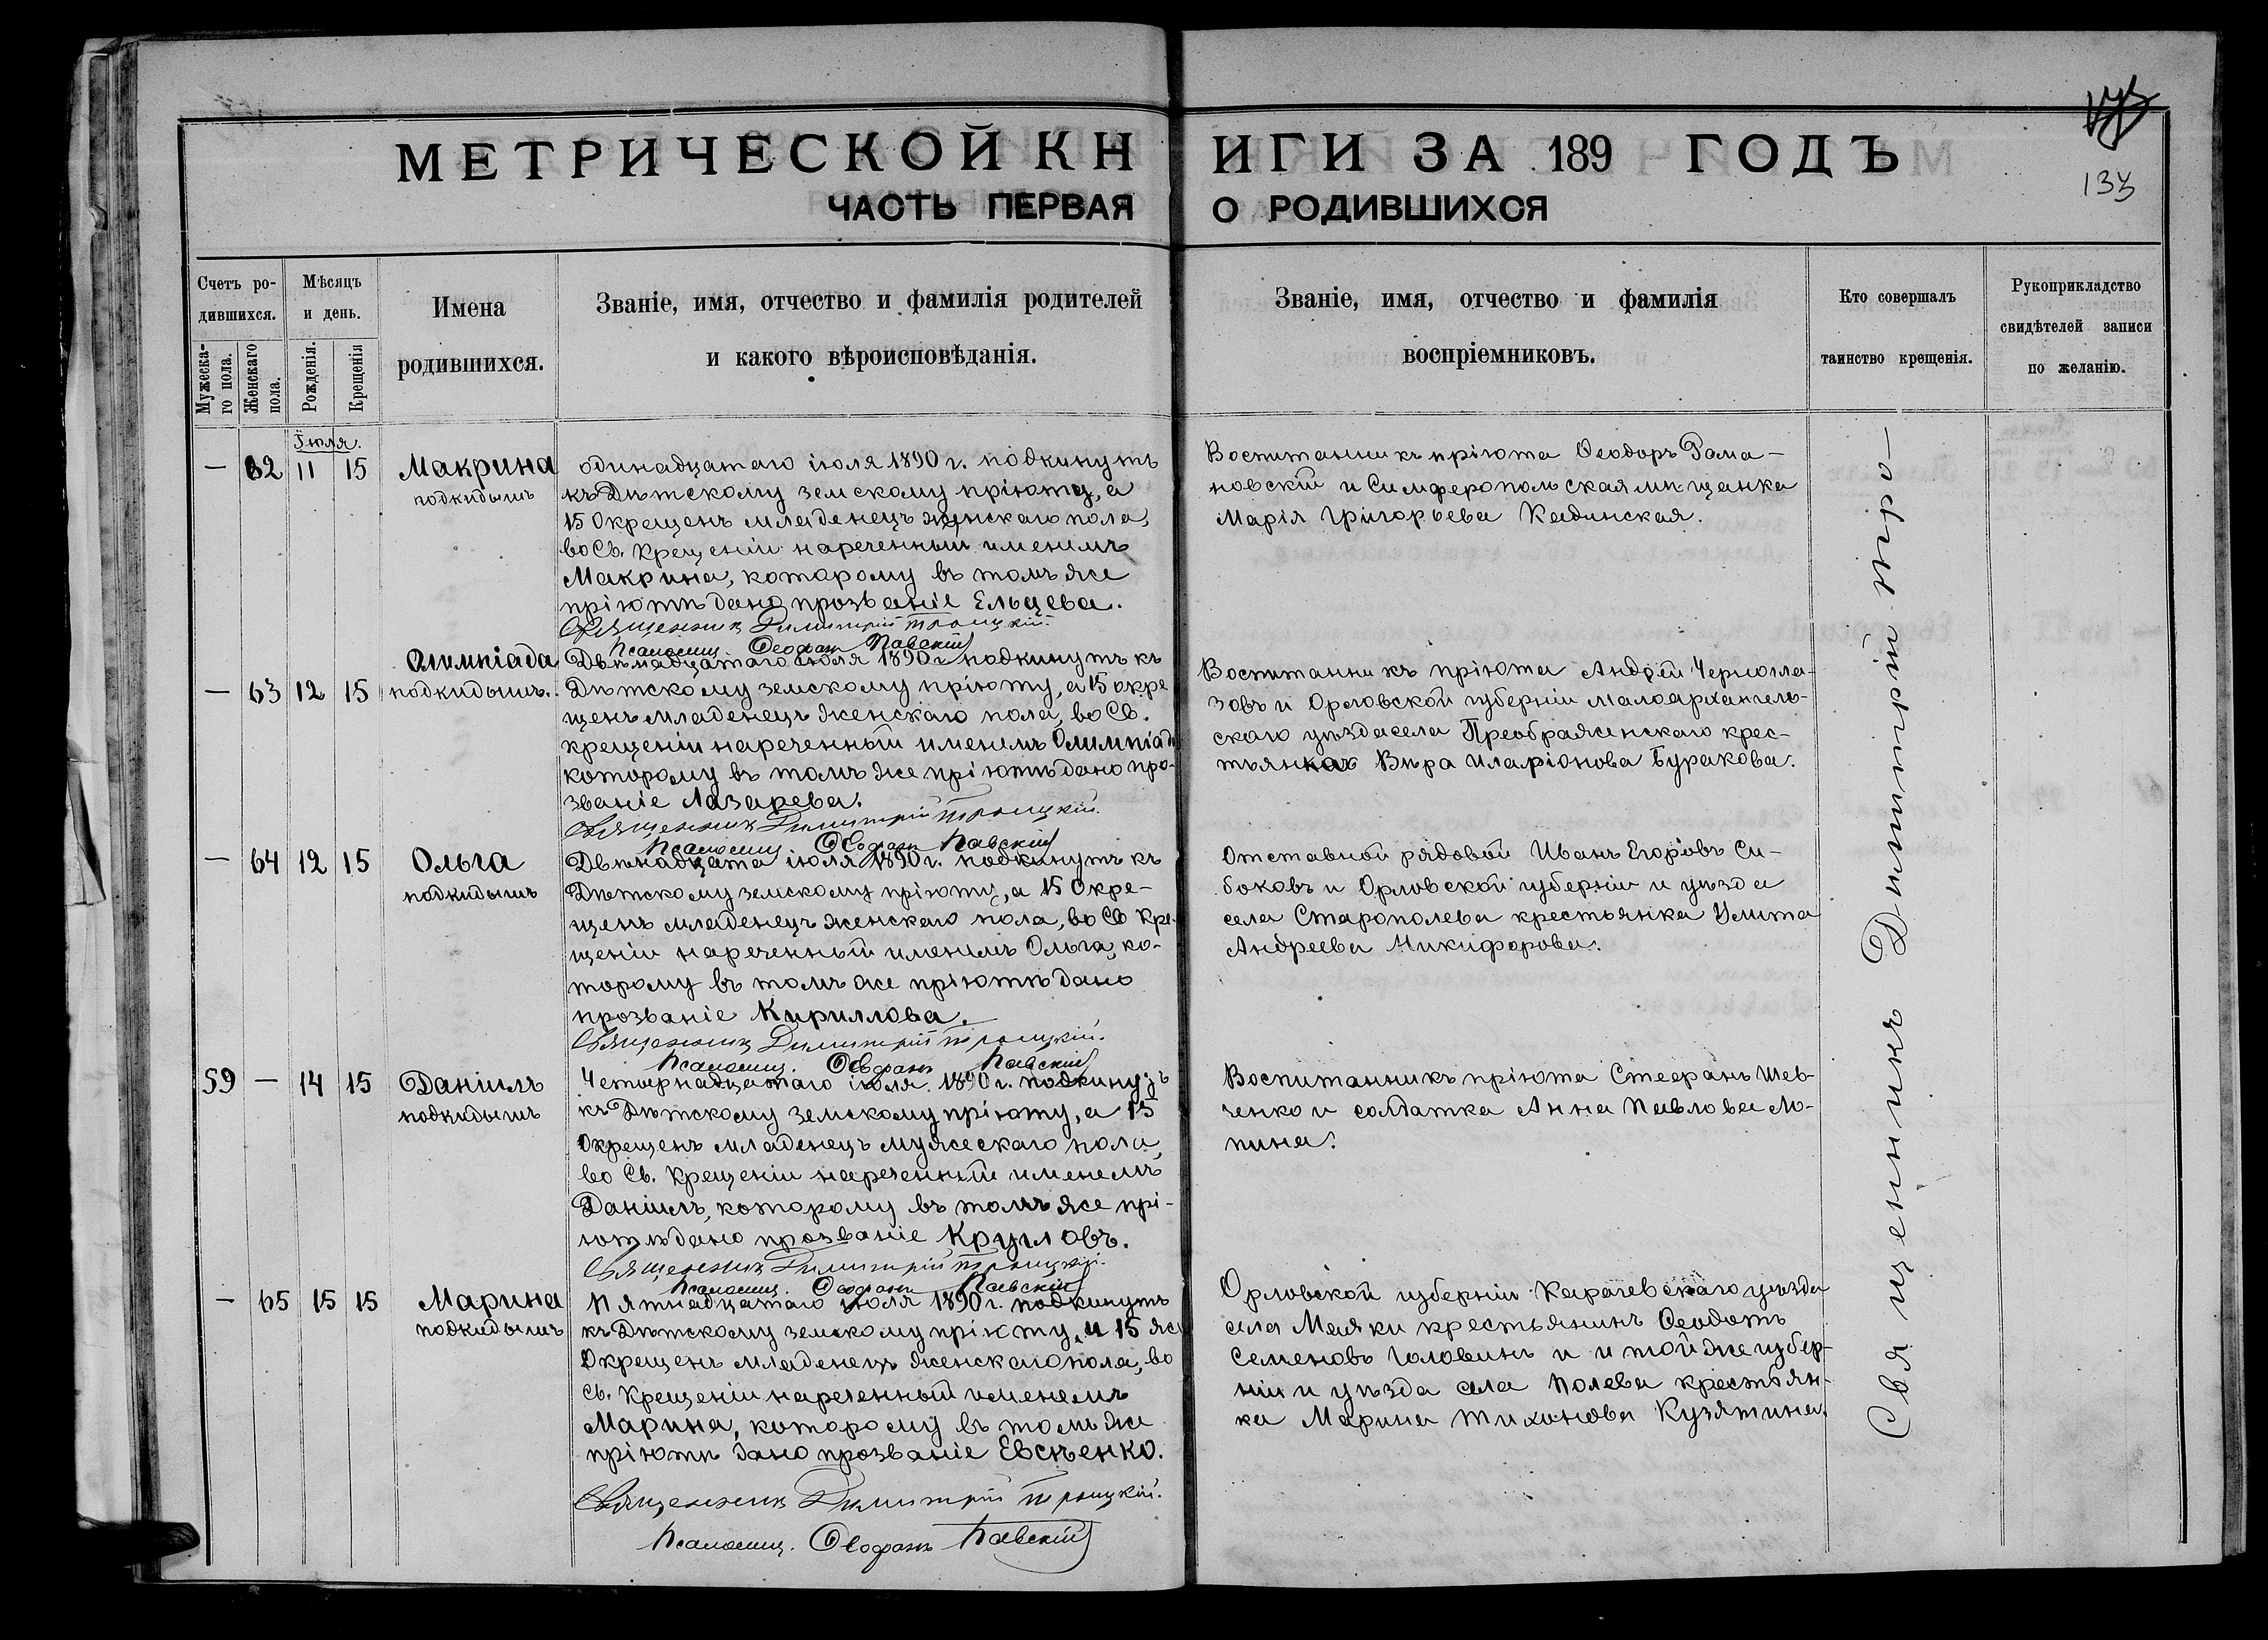 133
МЕТРИЧЕСКОЙ КНИГИ ЗА 189 ГОДЪ
ЧАСТЬ ПЕРВАЯ О РОДИВШИХСЯ
Счетъ ро-
дившихся.
Мужеска-
го пола.
Женскаго
пола.
Мѣсяцъ
и день.
Рожденія.
Крещенія
Имена
родившихся.
Званіе, имя, отчество и фамилія родителей
и какого вѣроисповѣданія.
Званіе, имя, отчество и фамилія
воспріемниковъ.
Кто совершалъ
таинство крещенія.
Рукоприкладство
свидѣтелей записи
по желанію.
Іюля.
— 62 11 15
Макрина
подкидышъ
одинадцатаго іюля 1890 г. подкинутъ
къ Дѣтскому земскому пріюту, а
15 Окрещенъ младенецъ женскаго пола,
во Св. Крещеніи нареченный именемъ
Макрина, которому въ томъ же
пріютѣ дано прозваніе Ельцева.
Священникъ Димитрій Троицкій.
Псаломщ. Ѳеофанъ Павскій
Воспитанникъ пріюта Ѳеодоръ Рома-
новскій и Симферопольская мѣщанка
Марія Григорьева Кадинская.
— 63 12 15
Олимпіада
подкидышъ.
Двѣнадцатаго іюля 1890 г. подкинутъ къ
Дѣтскому земскому пріюту, а 15 окре
щенъ младенецъ женскаго пола, во Св.
крещеніи нареченный именемъ Олимпіада
которому въ томъ же пріютѣ дано про-
званіе Лазарева.
Священникъ Димитрій Троицкій.
Псаломщ Ѳеофанъ Павскій
Воспитанникъ пріюта Андрей Черногла-
зовъ и Орловской губерніи малоархангель-
скаго уѣзда села Преображенскаго крес-
тьянка Вѣра Иларіонова Буракова.
— 64 12 15
Ольга
подкидышъ
Двѣнадцата іюля 1890 г. подкинутъ къ
Дѣтскому земскому пріюту, а 15 Окре-
щенъ младенецъ женскаго пола, во Св Кре-
щеніи нареченный именемъ Ольга, ко-
торому въ томъ же пріютѣ дано
прозваніе Кириллова.
Священникъ Димитрій Троицкій.
Псаломщ. Ѳеофанъ Павскій
Отставной рядовой Иванъ Егоровъ Си-
боковъ и Орловской губерніи и уѣзда
села Старополева крестьянка Улита
Андреева Никифорова.
59 — 14 15
Даніилъ
подкидышъ
Четырнадцатаго іюля 1890 г. подкинутъ
къ Дѣтскому земскому пріюту, а 15
Окрещенъ младенецъ мужескаго пола,
во Св. Крещеніи нареченный именемъ
Даніилъ, которому въ томъ же прі-
ютѣ дано прозваніе Кругловъ.
Священникъ Димитрій Троицкій.
Псаломщ. Ѳеофанъ Павскій
Воспитанникъ пріюта Стефанъ Шев-
ченко и солдатка Анна Павлова Ло-
пина.
— 65 15 15
Марина
подкидышъ
Пятнадцатаго іюля 1890 г. подкинутъ
къ Дѣтскому земскому пріюту, и 15 же
Окрещенъ младенецъ женскаго пола, во
Св. Крещеніи нареченный именемъ
Марина, которому въ томъ же
пріютѣ дано прозваніе Евсѣенко.
Священникъ Димитрій Троицкій.
Псаломщ. Ѳеофанъ Павскій
Орловской губерніи Карачевскаго уѣзда
села Маяки крестьянинъ Ѳеодотъ
Семеновъ Головинъ и и той же губер-
ніи и уѣзда села Полева крестьян-
ка Марина Тихонова Кузятина.
Священникъ Димитрій Тро—